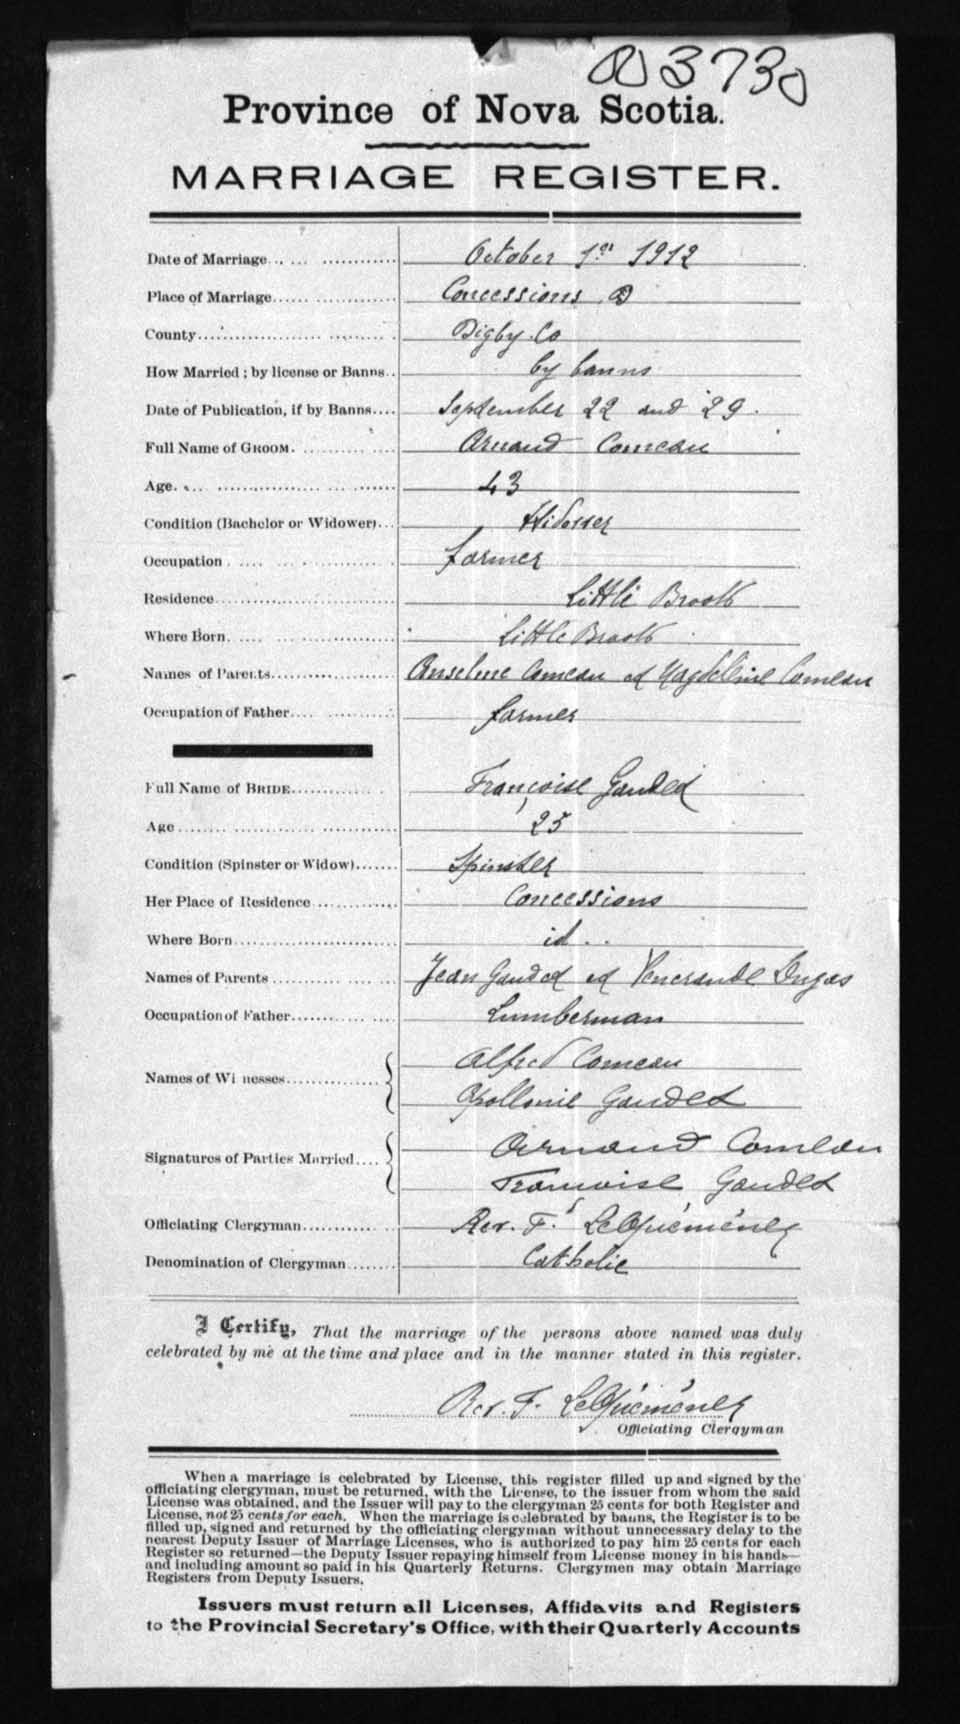 3730
Province of Nova Scotia.
MARRIAGE REGISTER.
Date of Marriage October 1st 1912
Place of Marriage Concessions
County Digby Co
How Married; by license or Banns by banns
Date of Publication, if by Banns September 22 and 29.
Full Name of GROOM. Armand Comeau
Age 43
Condition (Bachelor or Widower) Widower
Occupation farmer
Residence Little Brook
Where Born Little Brook
Names of Parents Anselme Comeau et Magdeleine Comeau
Occupation of Father farmer
Full Name of BRIDE Françoise Gaudet
Age 25
Condition (Spinster or Widow) Spinster
Her Place of Residence Concessions
Where Born id..
Names of Parents Jean Gaudet et Venerande Dugas
Occupation of Father Lumberman
Alfred Comeau
Names of Wi nesses
Apollonie Gaudet
Armand Comeau
Signatures of Parties Married
Francoise Gaudet
Officiating Clergyman Rev. F. LeQuéméner
Denomination of Clergyman Catholic
I Certify, That the marriage of the persons above named was duly
celebrated by me at the time and place and in the manner stated in this register.
Rev. F. LeQuéméner
Officiating Clergyman
When a marriage is celebrated by License, this register filled up and signed by the
officiating clergyman, must be returned, with the License, to the issuer from whom the said
License was obtained, and the Issuer will pay to the clergyman 25 cents for both Register and
License, not 25 cents for each. When the marriage is celebrated by banns, the Register is to be
filled up, signed and returned by the officiating clergyman without unnecessary delay to the
nearest Deputy Issuer of Marriage Licenses, who is authorized to pay him 25 cents for each
Register so returned—the Deputy Issuer repaying himself from License money in his hands—
and including amount so paid in his Quarterly Returns. Clergymen may obtain Marriage
Registers from Deputy Issuers.
Issuers must return all Licenses, Affidavits and Registers
to the Provincial Secretary's Office, with their Quarterly Accounts